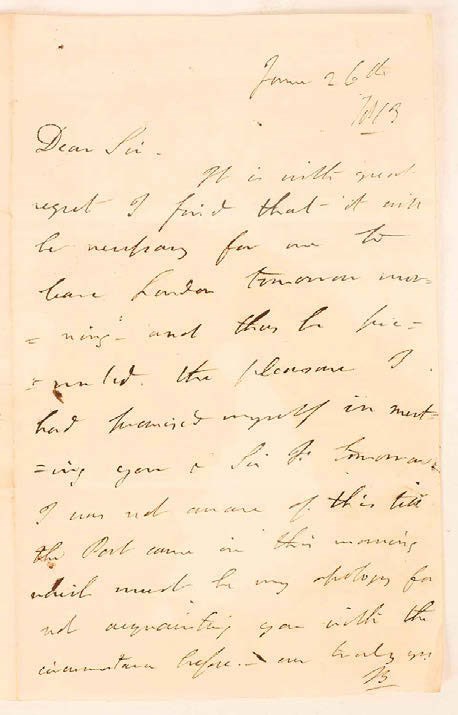 June 26th
1813
Dear Sir -
It is with great
regret I find that it will
be necessary for me to
leave London tomorrow mor=
=ning - and thus be pre=
=vented the pleasure I
had promised myself in meet=
=ing you & Sir F. tomorrow.
I was not aware of this till
the Post came in this morning
which must be my apology for
not acquainting you with the
circumstance before - ever truly yrs
B